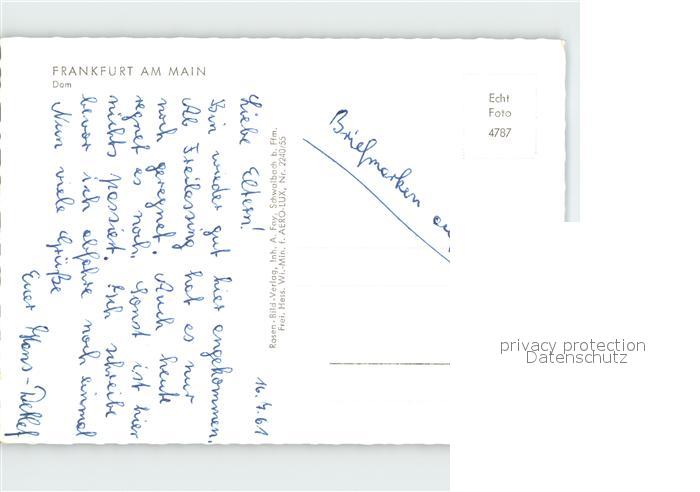 FRANKFURT AM MAIN
Dom
Liebe Eltern!
16.4.61
Bin wieder gut hier angekommen.
Ab Freilassing hat es nur
noch geregnet. Auch heute
regnet es noch. Sonst ist hier
nichts passiert. Ich schreibe
bevor ich abfahre noch einmal
Nun viele Grüße
Euer Hans-Detlef
Rosen-Bild-Verlag, Inh. A. Foy, Schwalbach b. Ffm.
Frei. Hess. Wi.-Min. f. AERO-LUX, Nr. 2240/55
Briefmarken
Echt
Foto
4787
privacy protection
Datenschutz